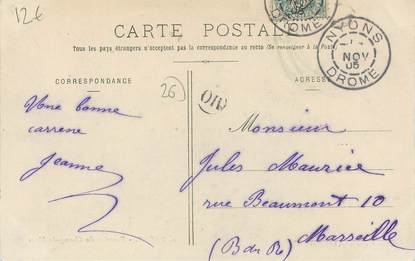 12€
CARTE POSTALE
Tous les pays étrangers n'acceptent pas la correspondance au recto (Se renseigner à la Poste)
NYONS
NOV
05
DROME
DROME
CORRESPONDANCE
ADRESSE
26
OR
Une bonne
carresse
Jeanne
Monsieur
Jules Maurice
rue Beaumont 10
Marseille
(B du R)